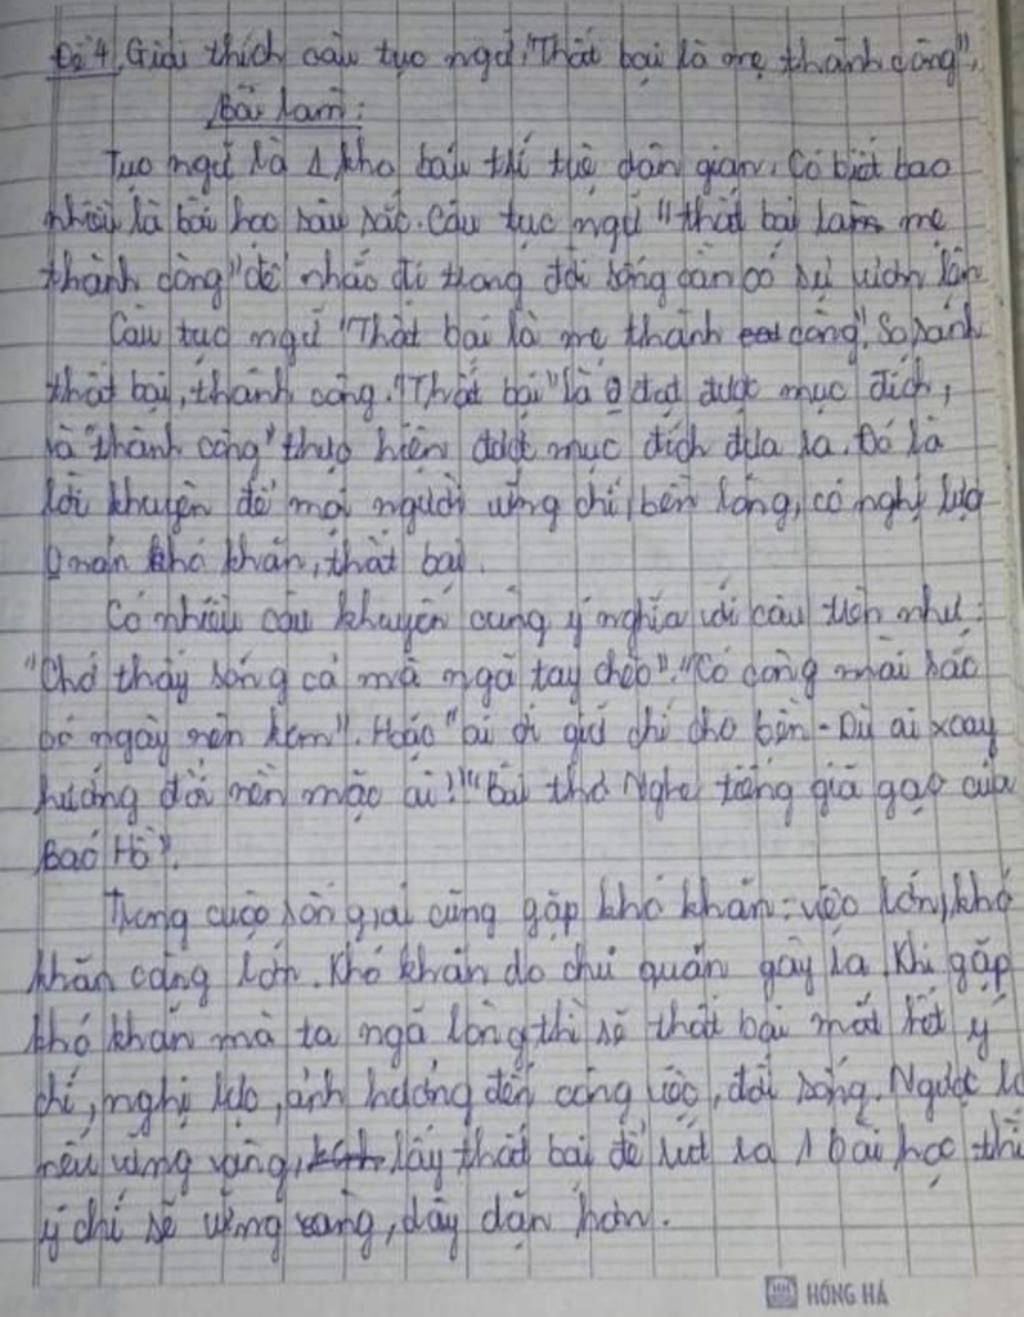 Đề 4, Giải thích câu tục ngữ "Thất bại là mẹ thành công",
Bài làm:
Tục ngữ là 1 kho báu trí tuệ dân gian. Có biết bao
nhiêu là bài học sâu sắc. Câu tục ngữ "thất bại làm mẹ
thành công" để nhắc đi trong đời sống cần có sự
Câu tục ngữ "Thất bại là mẹ thành công". So sánh
thất bại, thành công. "Thất bại" là đạt được mục đích,
là "thành công" thực hiện được mục đích đưa ra. Đó là
lời khuyên để mọi người vững chí, bền lòng, có nghị lực
khó khăn, thất bại.
Có nhiều câu khuyên cùng ý nghĩa với câu trên như:
"Chớ thấy sóng cả mà ngã tay chèo". "Có công mài sắc
có ngày nên kim". Hoặc "ai ơi giữ chí cho bền - Dù ai xoay
hướng đổi nền mặc ai!" "Bài thơ Nghe tiếng giã gạo của
Bác Hồ".
Trong cuộc sống ai cũng gặp khó khăn: việc lớn, khó
khăn càng lớn. Khó khăn do chủ quan gây ra. Khi gặp
khó khăn mà ta ngã lòng thì sẽ thất bại mất hết ý
chí, nghị lực, ảnh hưởng đến công việc, đời sống. Ngược
nếu vững vàng, lấy thất bại để rút ra 1 bài học thì
ý chí sẽ vững vàng, dày dặn hơn.
HỒNG HÀ